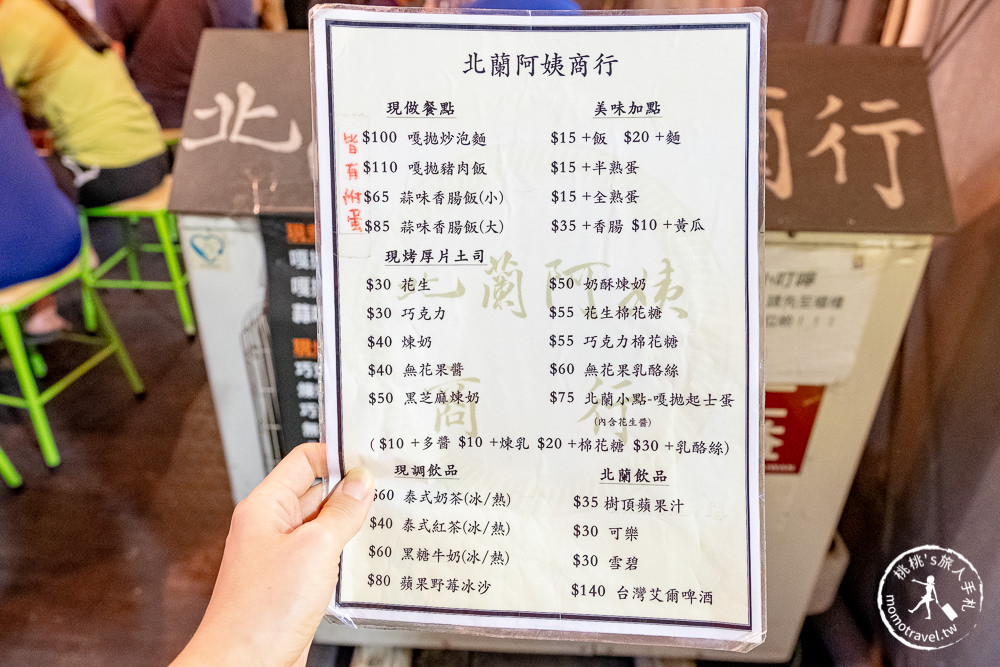 北蘭阿姨商行
現做餐點
$100 嘎拋炒泡麵
$110 嘎拋豬肉飯
$65 蒜味香腸飯(小)
$85 蒜味香腸飯(大)
皆有附蛋
美味加點
$15 +飯 $20 +麵
$15 +半熟蛋
$15 +全熟蛋
$35 +香腸 $10 +黃瓜
現烤厚片土司
$30 花生
$30 巧克力
$40 煉奶
$40 無花果醬
$50 黑芝麻煉奶
$50 奶酥煉奶
$55 花生棉花糖
$55 巧克力棉花糖
$60 無花果乳酪絲
$75 北蘭小點-嘎拋起士蛋
(內含花生醬)
( $10 +多醬 $10 +煉乳 $20 +棉花糖 $30 +乳酪絲)
現調飲品
$60 泰式奶茶(冰/熱)
$40 泰式紅茶(冰/熱)
$60 黑糖牛奶(冰/熱)
$80 蘋果野莓冰沙
北蘭飲品
$35 樹頂蘋果汁
$30 可樂
$30 雪碧
$140 台灣艾爾啤酒
北蘭阿姨
商行
北
行
小叮嚀
請先至櫃檯
桃桃's旅人手札
momotravel.tw